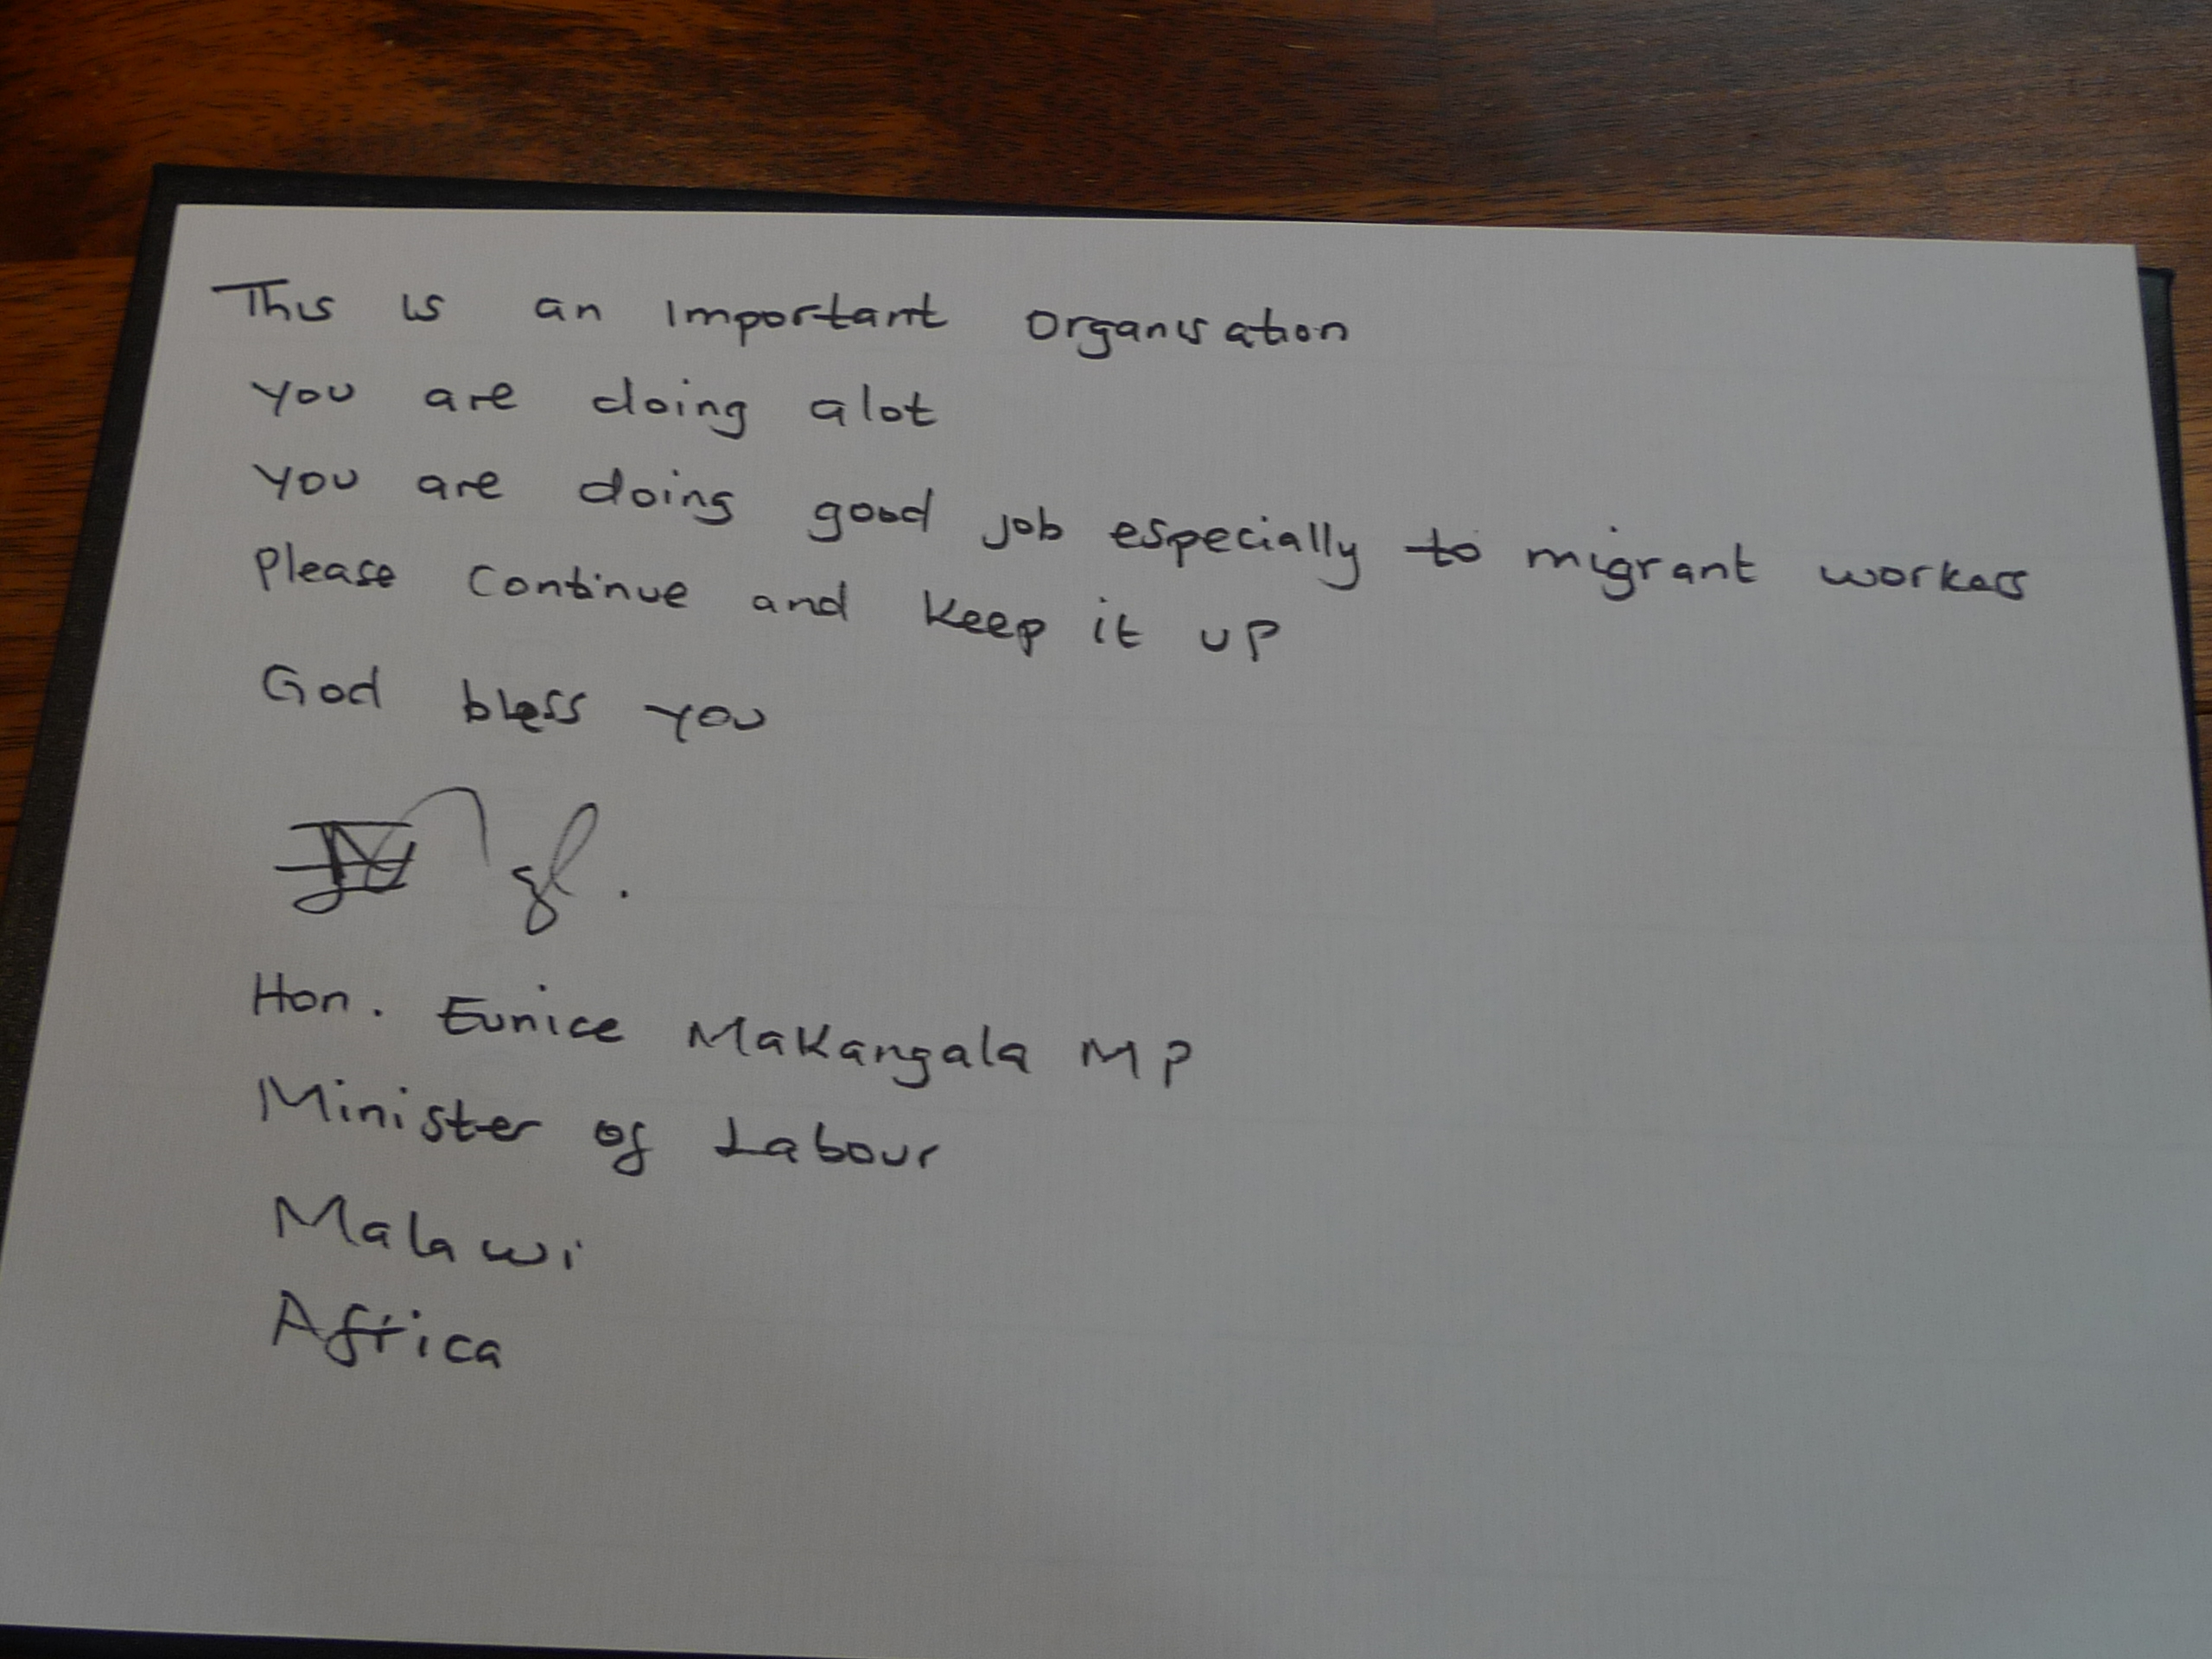 This is an important organisation
You are doing alot
You are doing good job especially to migrant workers
Please continue and keep it up
God bless you
Hon. Eunice Makangala MP
Minister of Labour
Malawi
Africa